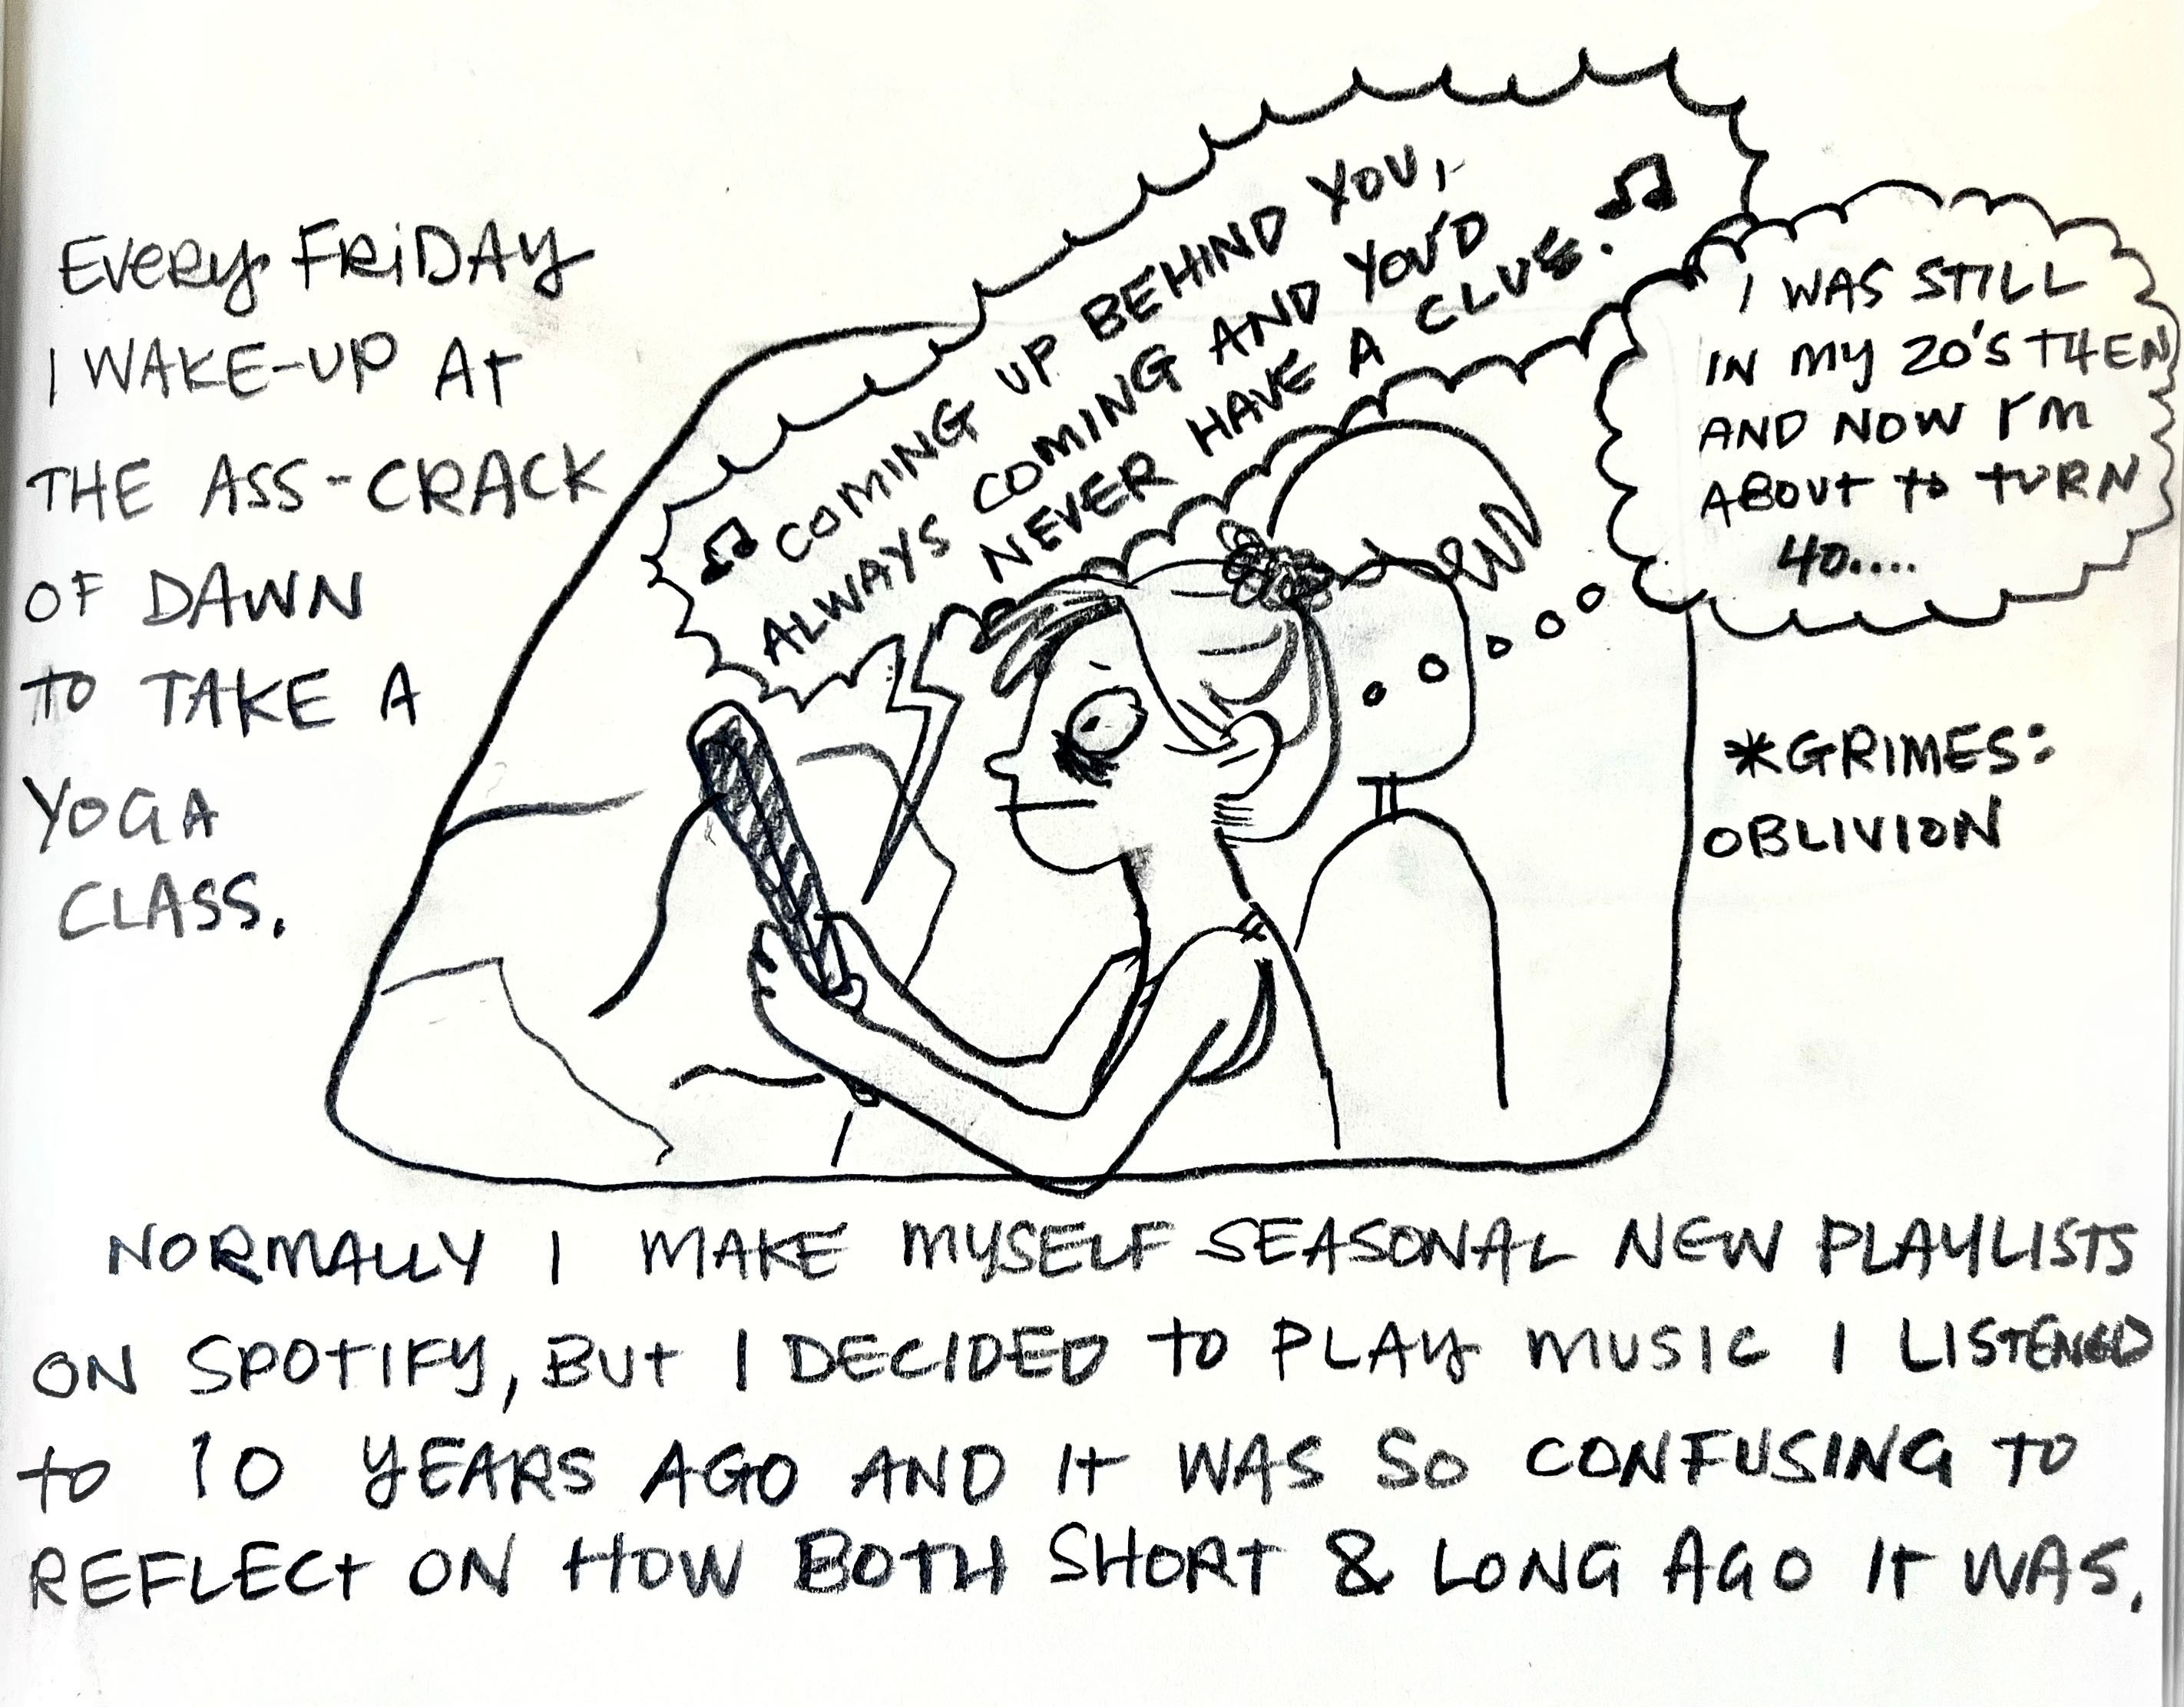 EVERY FRIDAY
I WAKE-UP AT
THE ASS-CRACK
OF DAWN
TO TAKE A
YOGA
CLASS.
♫ COMING UP BEHIND YOU,
ALWAYS COMING AND YOU'D
NEVER HAVE A CLUE. ♫
I WAS STILL
IN MY 20'S THEN
AND NOW I'M
ABOUT TO TURN
40....
*GRIMES:
OBLIVION
NORMALLY I MAKE MYSELF SEASONAL NEW PLAYLISTS
ON SPOTIFY, BUT I DECIDED TO PLAY MUSIC I LISTENED
TO 10 YEARS AGO AND IT WAS SO CONFUSING TO
REFLECT ON HOW BOTH SHORT & LONG AGO IT WAS.